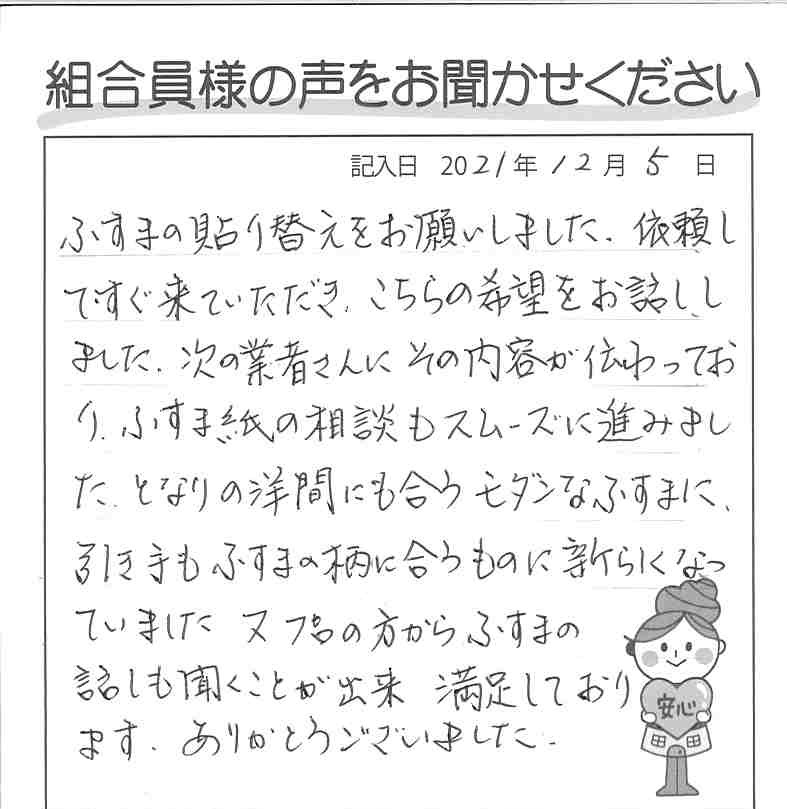 組合員様の声をお聞かせください
記入日 2021年12月5日
ふすまの貼り替えをお願いしました。依頼し
てすぐ来ていただき、こちらの希望をお話しし
ました。次の業者さんにその内容が伝わってお
り、ふすま紙の相談もスムーズに進みまし
た。となりの洋間にも合うモダンなふすまに、
引き手もふすまの柄に合うものに新らしくなっ
ていました 又プロの方からふすまの
話しも聞くことが出来 満足しており
ます。ありがとうございました。
安心